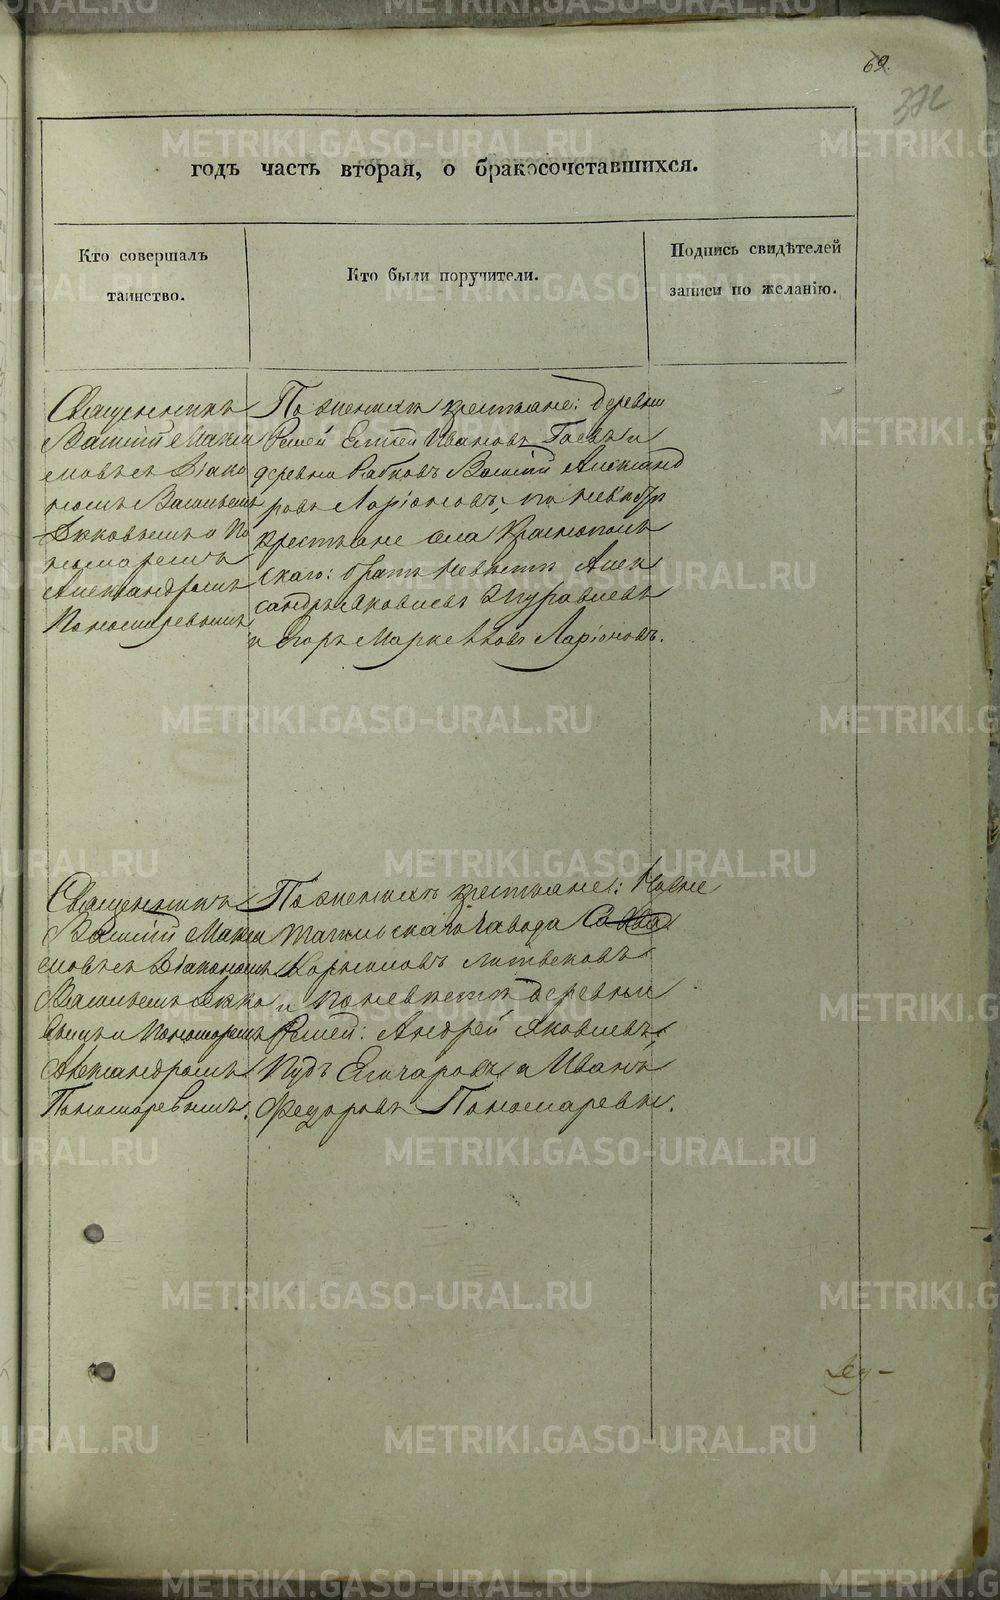 69.
372
годъ часть вторая, о бракосочетавшихся.
Кто совершалъ
таинство.
Кто были поручители.
Подпись свидѣтелей
записи по желанію.
Священникъ
Василій Макси
мовъ съ Діако
номъ Васильемъ
и По
номаремъ
Александромъ
Пономаревымъ
По женихѣ крестьяне: деревни
Ивановъ и
деревни Василій Александ
ровъ Ларіоновъ; по невѣстѣ
крестьяне села Краснополь
скаго: братъ невѣсты Алек
сандръ Яковлевъ Журавлевъ
и Егоръ Ларіоновъ.
Священникъ
Василій Макси
мовъ съ Діакономъ
Васильемъ
и Пономаремъ
Александромъ
Пономаревымъ.
По женихѣ крестьяне: Нижне
Тагильскаго завода
Корниловъ
и по невѣстѣ деревни
Андрей Яковлевъ,
и Иванъ
Федоровъ Пономаревы.
METRIKI.GASO-URAL.RU